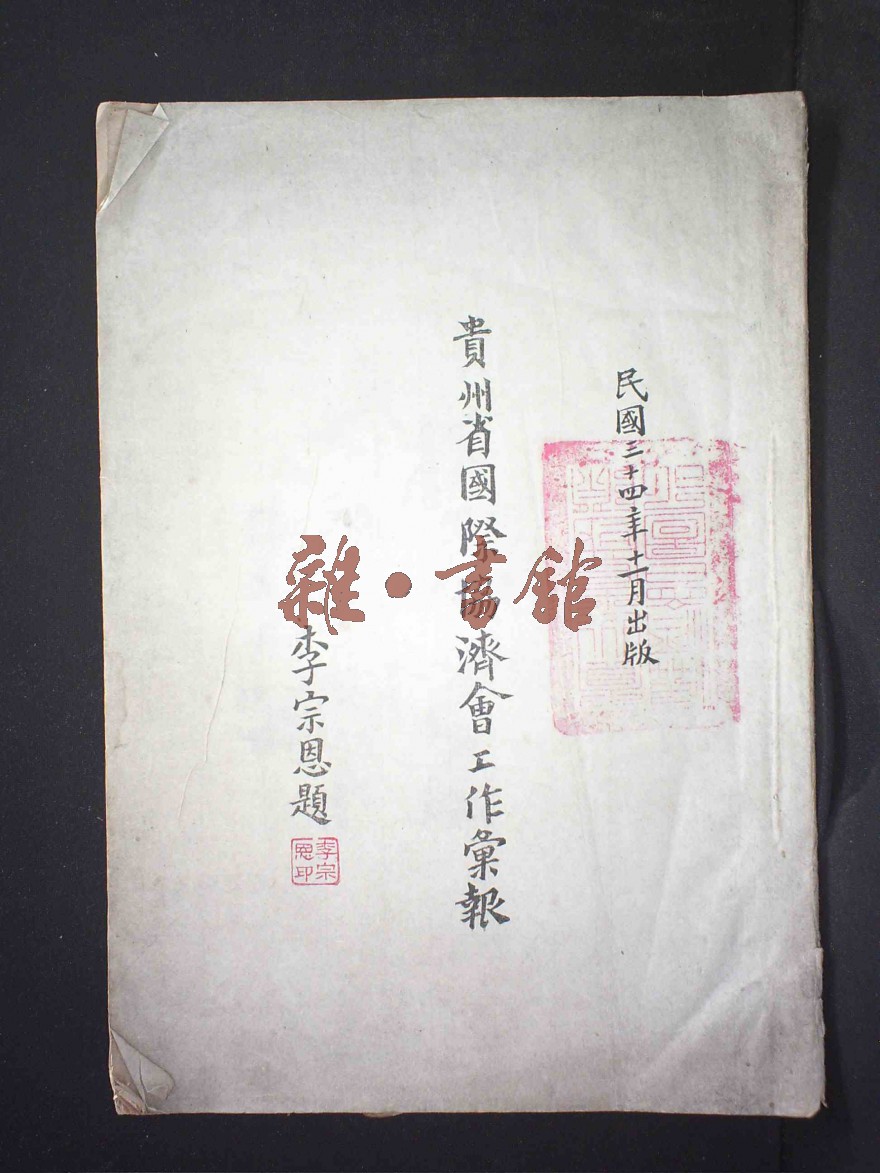 民國三十四年十一月出版
貴州省國際協濟會工作彙報
李宗恩題
李宗恩印
雜·書館